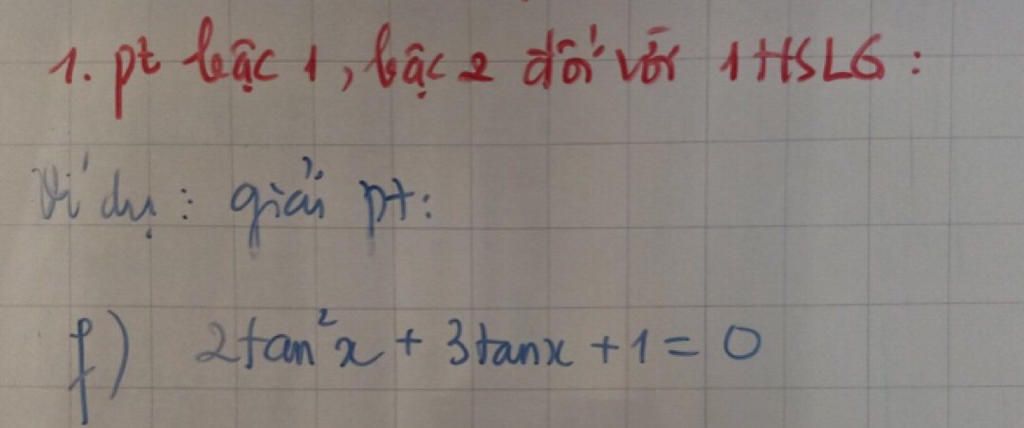 1. pt bậc 1, bậc 2 đối với 1 HSLG:
Ví dụ: giải pt:
f) 2tan²x + 3tanx + 1 = 0